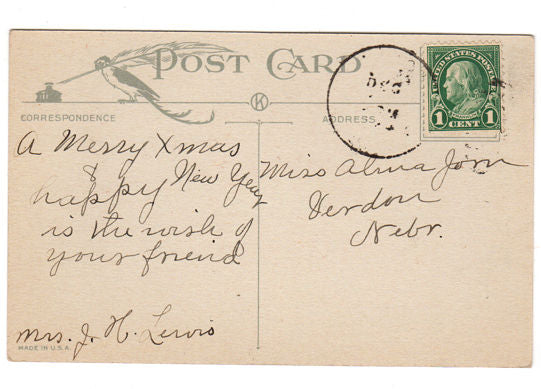 POST CARD
CORRESPONDENCE
ADDRESS
K
UNITED STATES POSTAGE
1 CENT 1
DEC
A Merry Xmas
& happy New Year
is the wish of
your friend
Mrs. J. H. Lewis
Miss Alma
Verdon
Nebr.
MADE IN U.S.A.